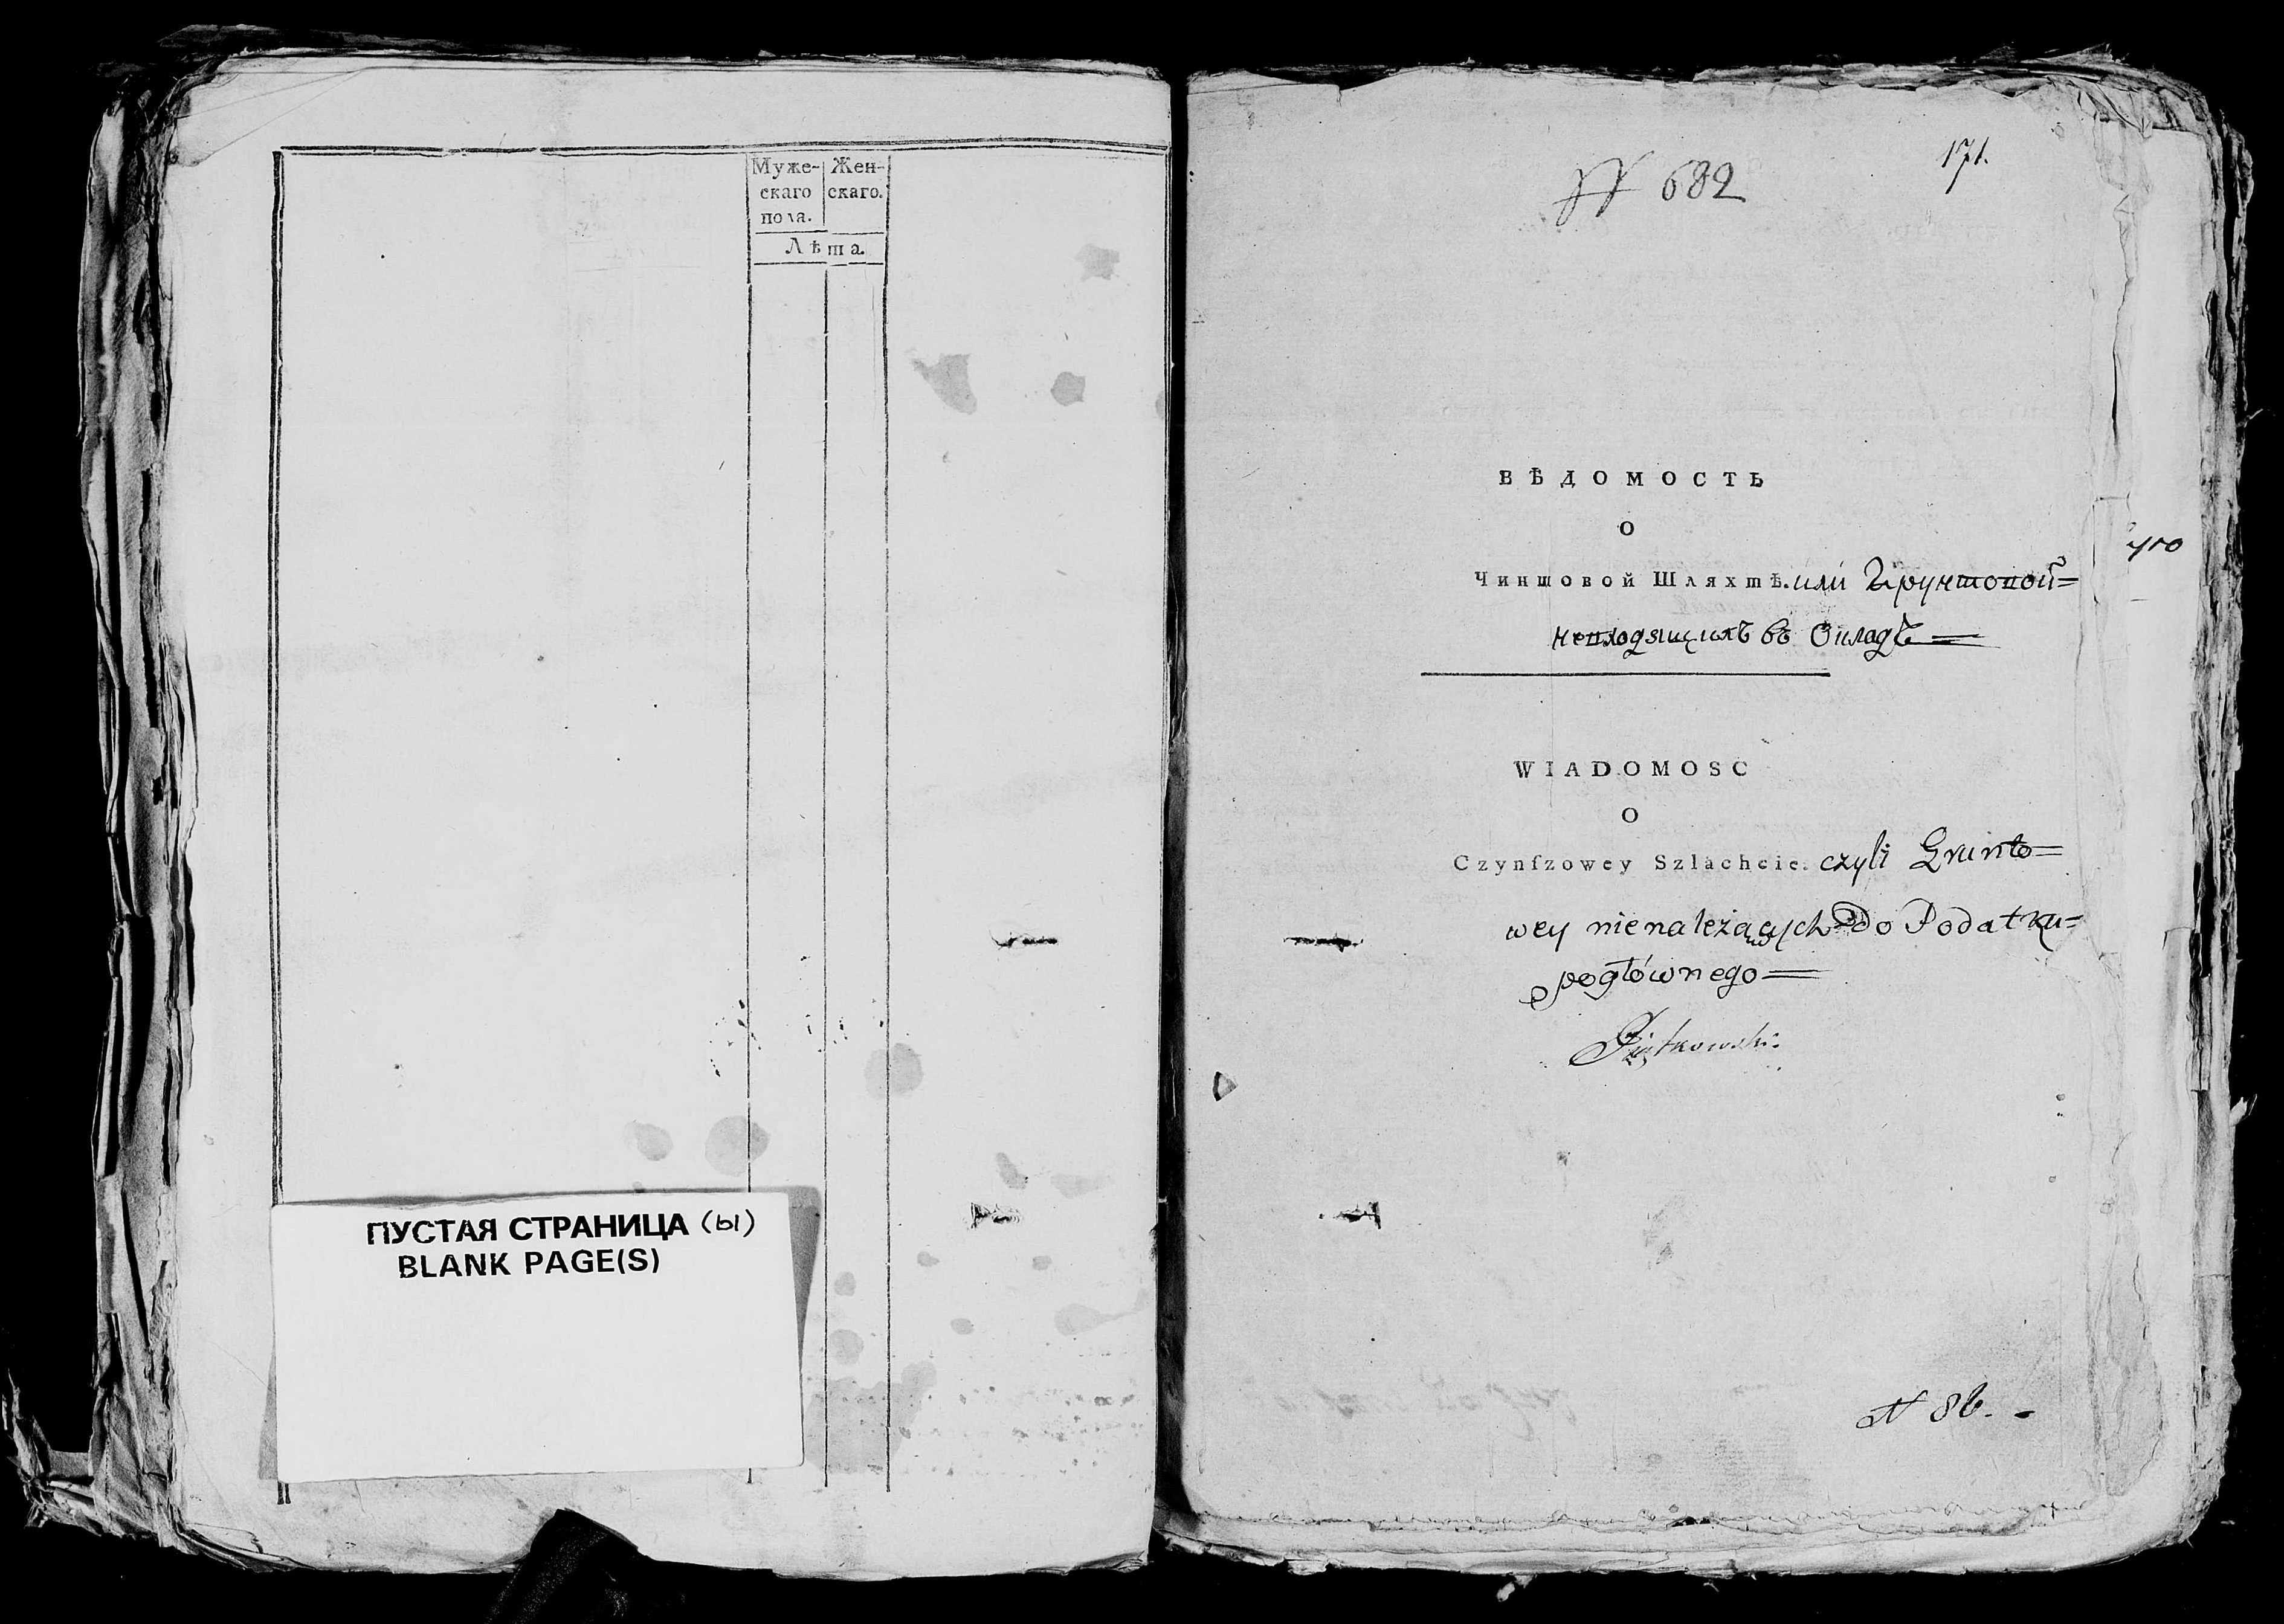 Муже- Жен-
скаго скаго.
пола.
Лѣта.
ПУСТАЯ СТРАНИЦА (ы)
BLANK PAGE(S)
171.
N 682
ВѢДОМОСТЬ
О
Чиншовой Шляхтѣ. или Грунтовой=
невходящихъ въ Окладъ
WIADOMOSC
O
Czynſzowey Szlachcie. czyli Grunto=
wey nienależących do Podatku=
pogłównego
Piątkowski.
N 86.